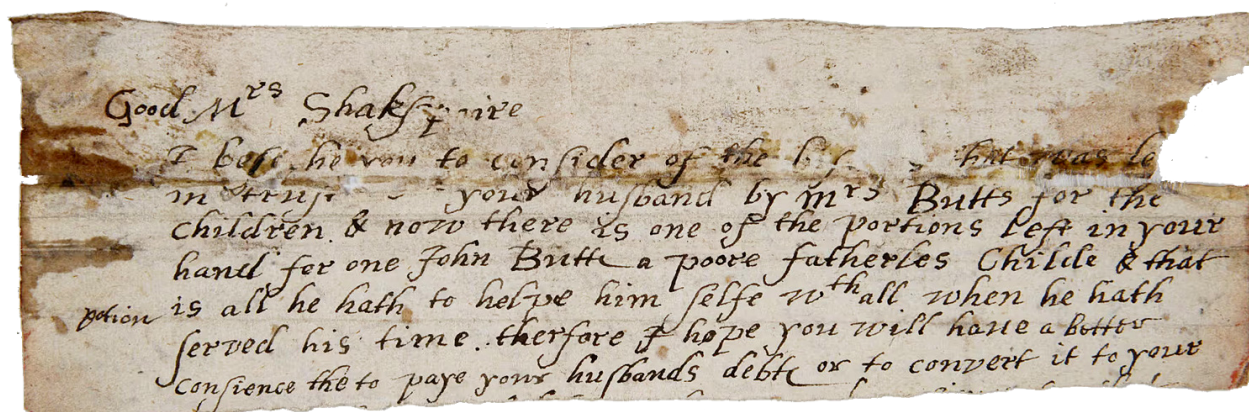 Good Mrs Shakspaire
I beseche you to consider of the that was le
in trust your husband by Mrs Butts for the
Children & now there is one of the portions left in your
hand for one John Butte a poore fatherles Childe & that
is all he hath to helpe him selfe wth all when he hath
potion
served his time. therfore I hope you will have a better
Consience the to paye your husbands debte or to convert it to your